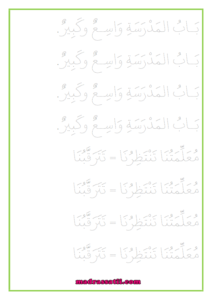 بَـابُ المَدْرَسَةِ وَاسِـعٌ وكَبِيرٌ.
بَـابُ المَدْرَسَةِ وَاسِـعٌ وكَبِيرٌ.
بَـابُ المَدْرَسَةِ وَاسِـعٌ وكَبِيرٌ.
بَـابُ المَدْرَسَةِ وَاسِـعٌ وكَبِيرٌ.
مُعَلِّمَتُنَا تَنْتَظِرُنَا = تَتَرَقَّبُنَا
مُعَلِّمَتُنَا تَنْتَظِرُنَا = تَتَرَقَّبُنَا
مُعَلِّمَتُنَا تَنْتَظِرُنَا = تَتَرَقَّبُنَا
مُعَلِّمَتُنَا تَنْتَظِرُنَا = تَتَرَقَّبُنَا
madrassatii.com